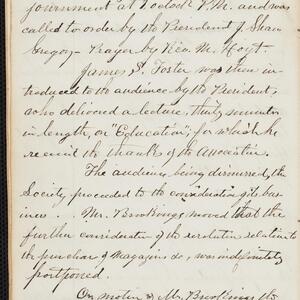 journment at 7 o'clock P.M. and was
called to order by the President J. Shaw
Gregory - Prayer by Rev. M. Hoyt.
James S. Foster was then in-
troduced to the audience by the President,
who delivered a lecture, thirty minutes
in length, on "Education"; for which he
received the thanks of the Association.
The audience being dismissed, the
Society proceeded to the consideration of its bus
iness. . Mr. Brookings moved that the
further consideration of the resolution relation to
the purchase of Magazines &c, was indefinitely
postponed.
On motion of Mr. Brookings